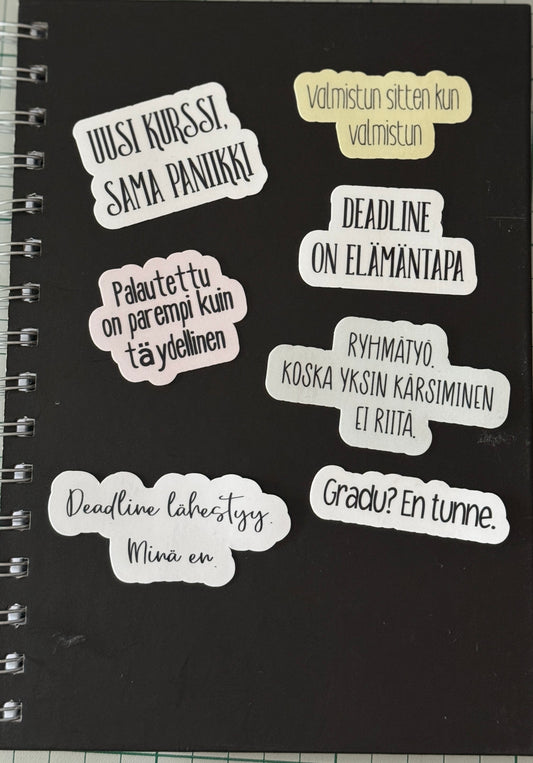 UUSI KURSSI,
SAMA PANIIKKI
Valmistun sitten kun
valmistun
DEADLINE
ON ELÄMÄNTAPA
Palautettu
on parempi kuin
täydellinen
RYHMÄTYÖ.
KOSKA YKSIN KÄRSIMINEN
EI RIITÄ.
Deadline lähestyy.
Minä en.
Gradu? En tunne.